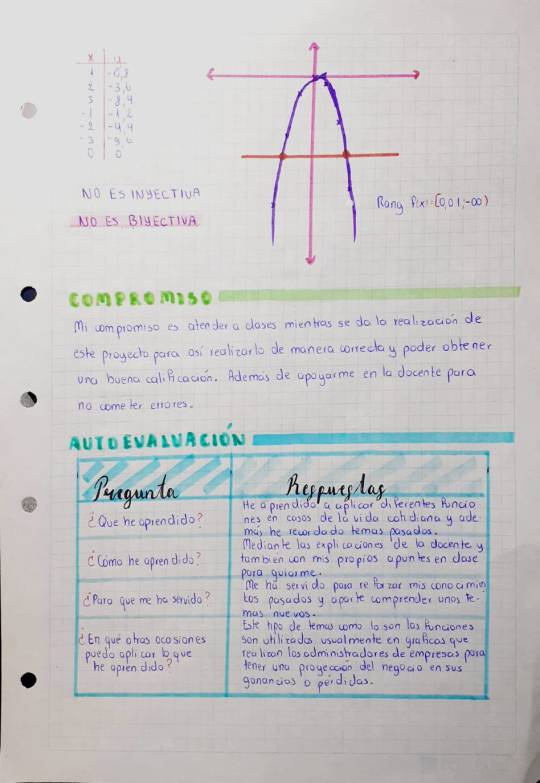 x y
1 -0,8
2 -3,6
3 -8,4
-1 -1,2
-2 -4,4
-3 -9,6
0 0
NO ES INYECTIVA
NO ES BIYECTIVA
Rang f(x)=[0,01;-∞)
COMPROMISO
Mi compromiso es atender a clases mientras se da la realización de
este proyecto para así realizarlo de manera correcta y poder obtener
una buena calificación. Además de apoyarme en la docente para
no cometer errores.
AUTOEVALUACIÓN
Pregunta Respuestas
¿Que he aprendido?
He aprendido a aplicar diferentes funcio
nes en casos de la vida cotidiana y ade
más he recordado temas pasados.
¿Cómo he aprendido?
Mediante las explicaciones de la docente y
también con mis propios apuntes en clase
para guiarme.
¿Para que me ha servido?
Me ha servido para reforzar mis conocimien
tos pasados y aparte comprender unos te-
mas nuevos.
¿En qué otras ocasiones
puedo aplicar lo que
he aprendido?
Este tipo de temas como lo son las funciones
son utilizados usualmente en graficas que
realizan los administradores de empresas para
tener una proyección del negocio en sus
ganancias o pérdidas.